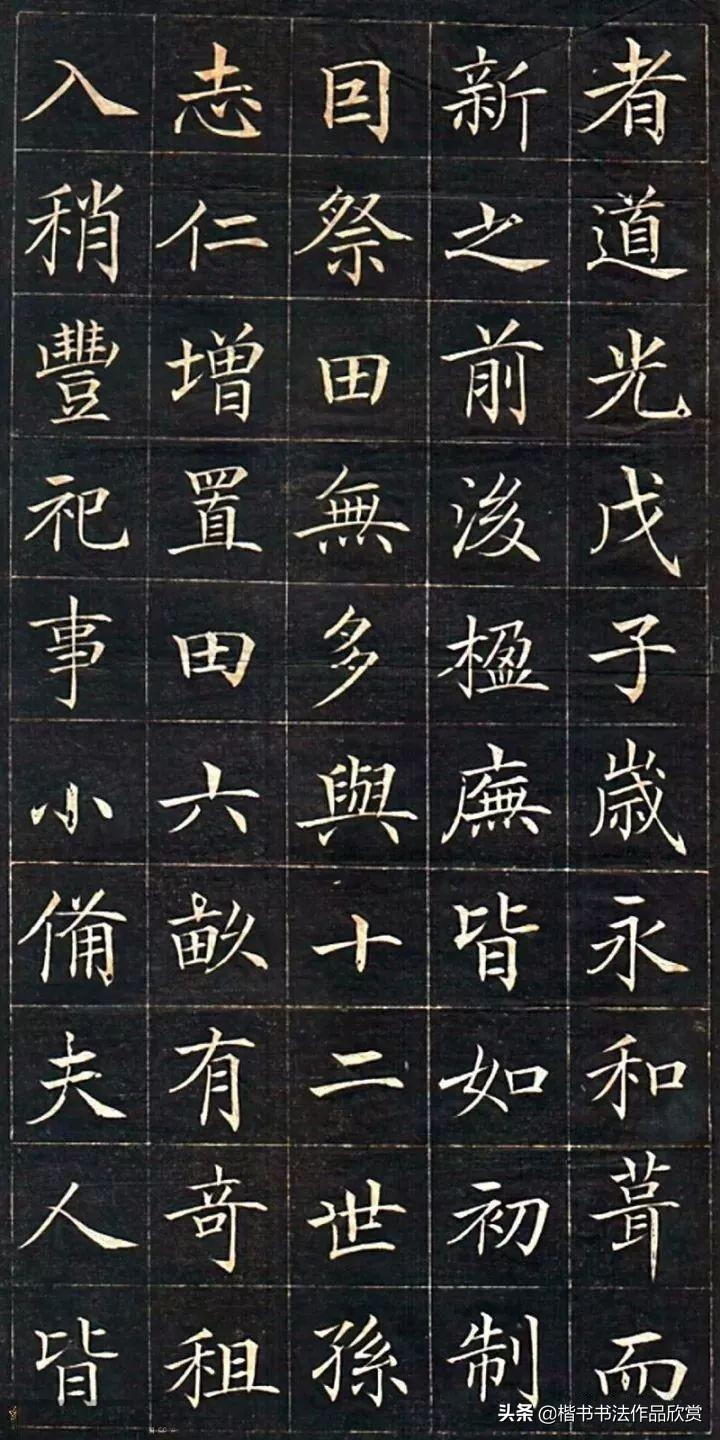 者道光戊子歲永和葺而
新之前後楹廡皆如初制
因祭田無多與十二世孫
志仁增置田六畝有奇租
入稍豐祀事小備夫人皆
头条 @楷书书法作品欣赏